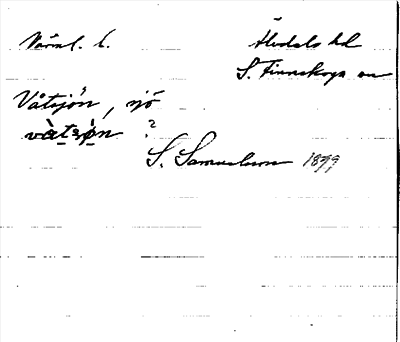 Värml. l. Älvdals hd
S. Finnskoga sn
Våtsjön, sjö
våtsjön ?
S. Samuelsson 1899